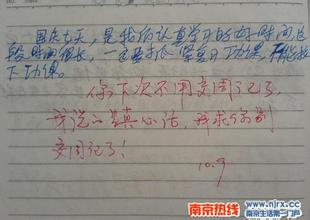 国庆七天，是我们认真学习的好时间，这
段时间很长，一定要抓紧复习功课，不能拉
下功课。
你下次不用交周记了，
我说的是真心话，我求你别
交周记了！
10.9
南京热线 www.njrx.cc
南京生活第一门户